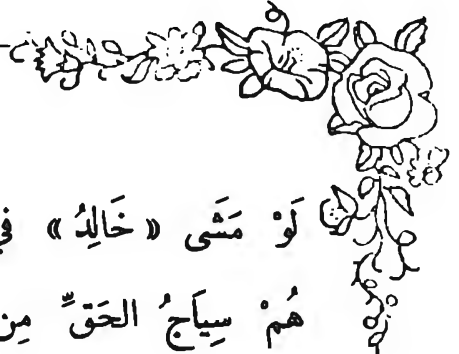 لَوْ مَشَى « خَالِدُ » في
هُمْ سِيَاجُ الحَقِّ مِن